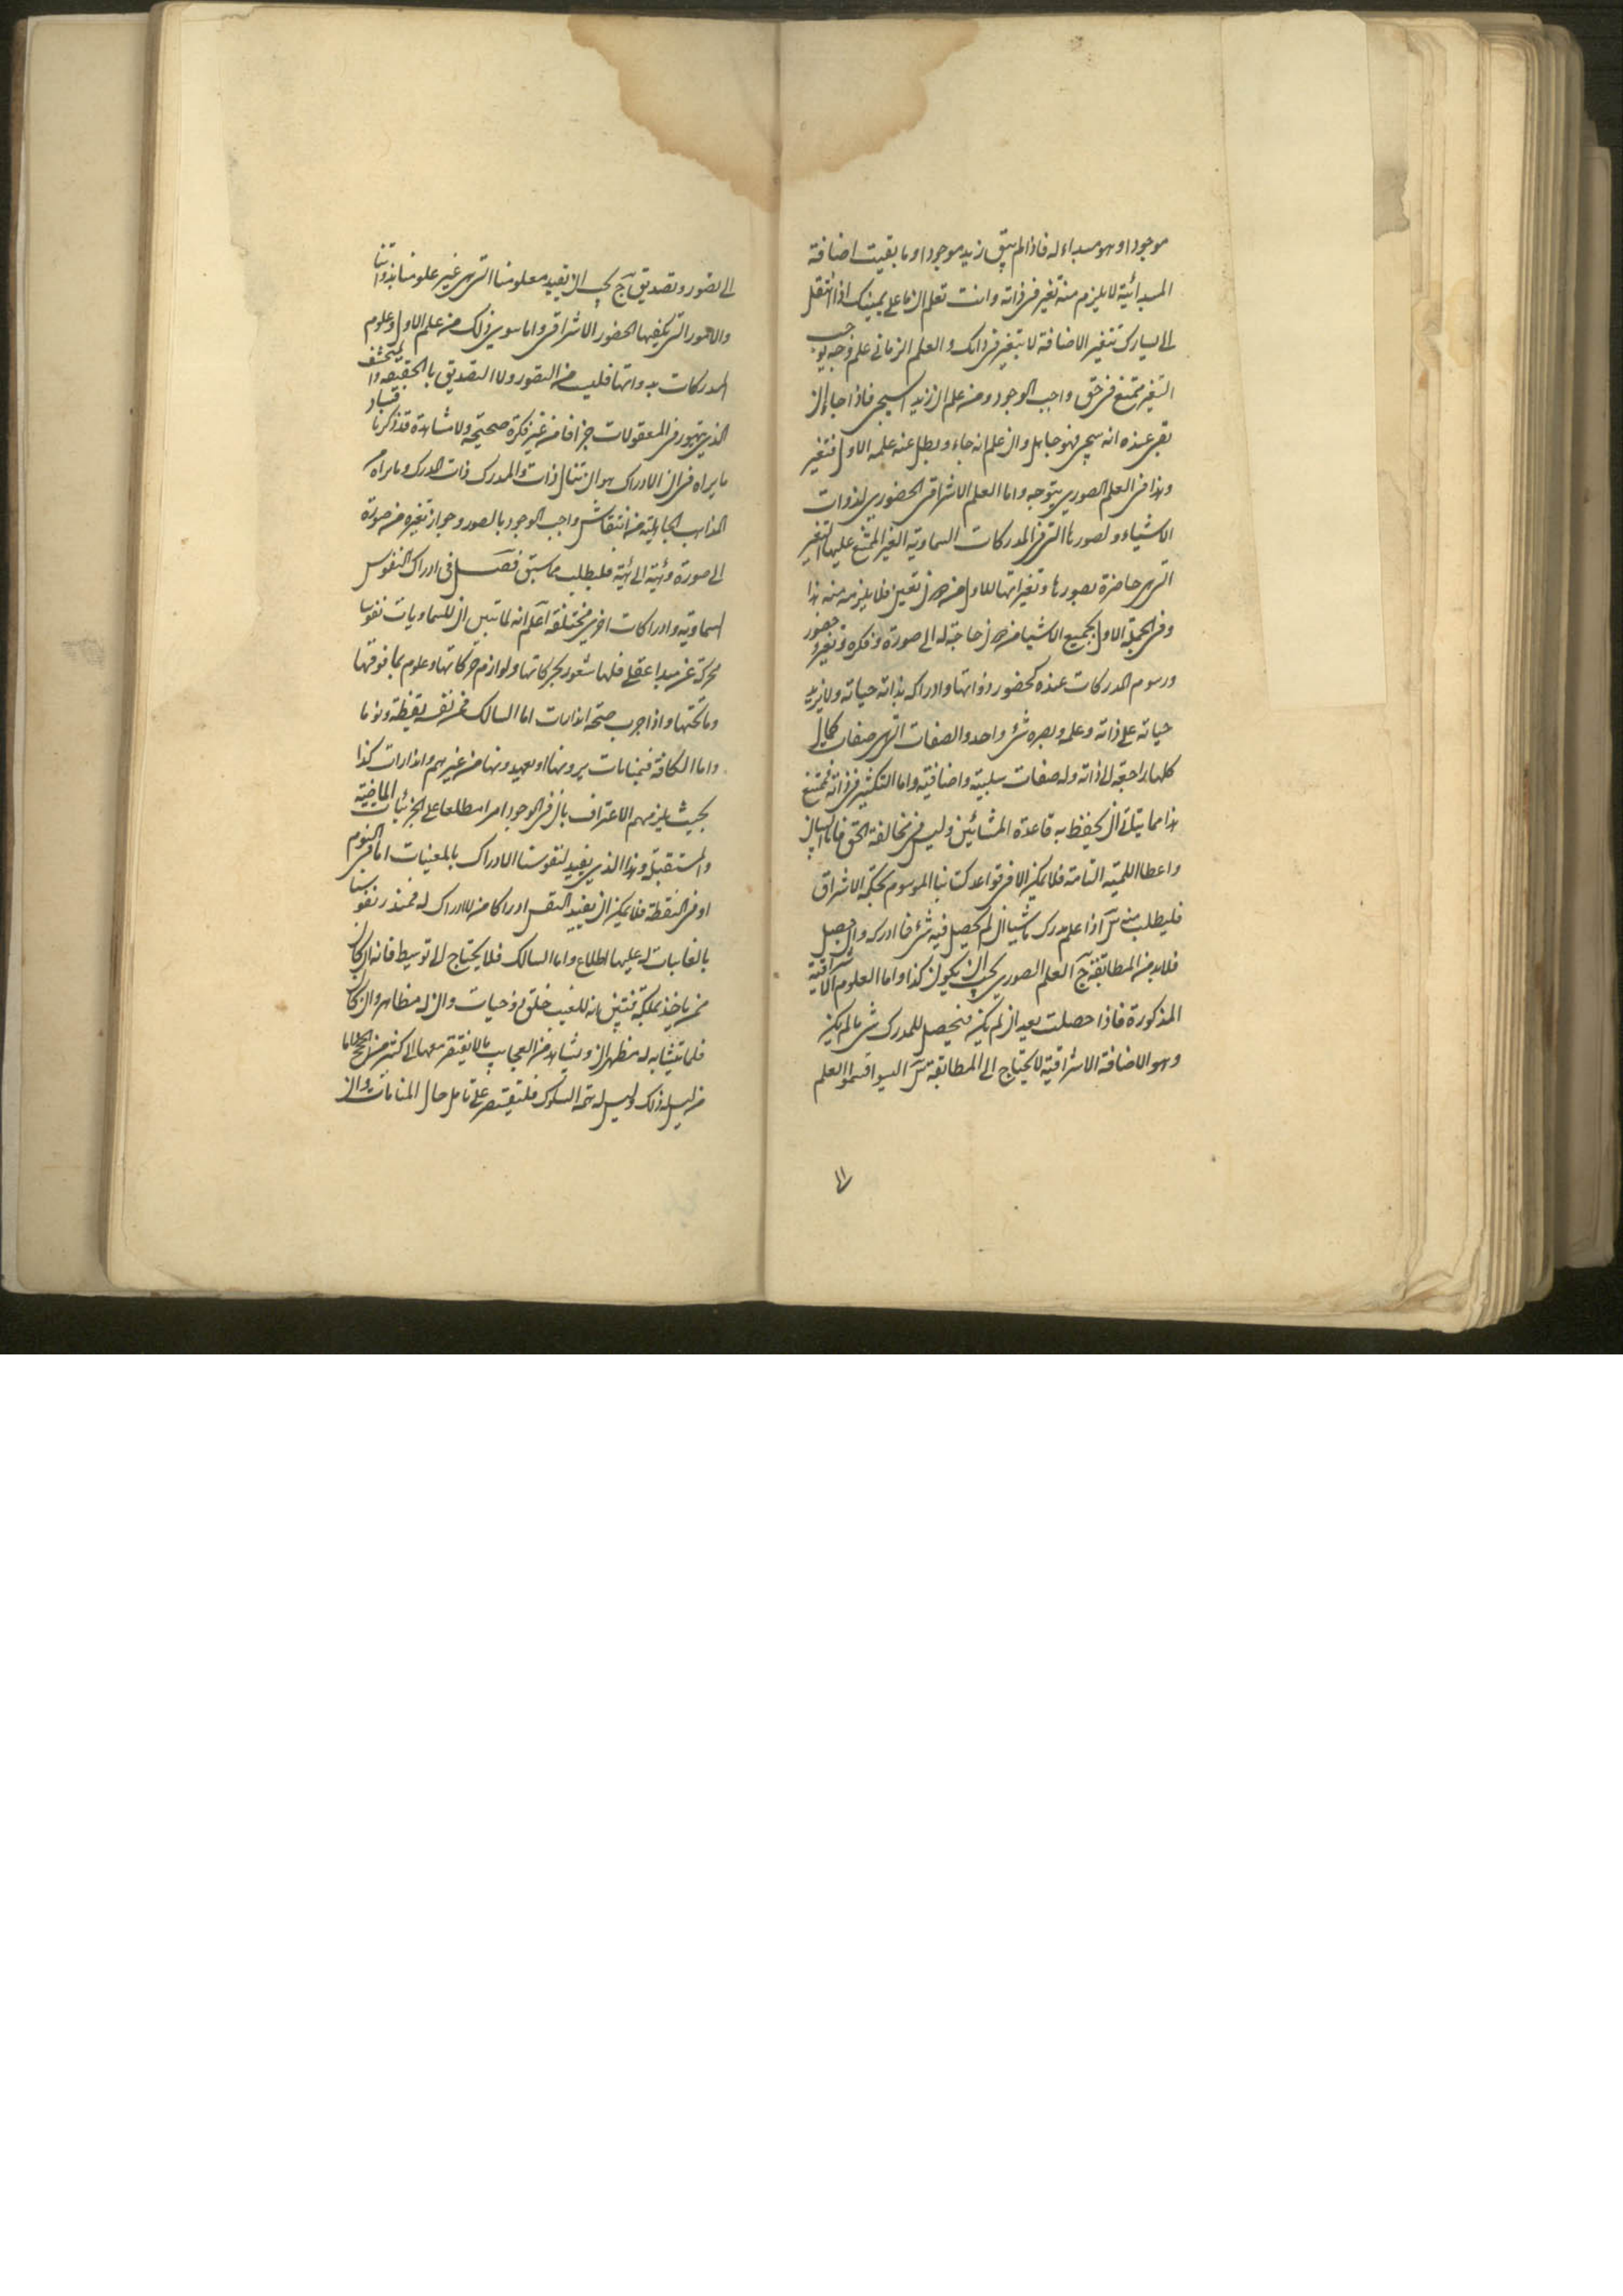 موجودا وهو مبداء له فاذا لم يبق زيد موجودا وما بقيت اضافة
المبدائية لا يلزم منه تغير فى ذاته وانت تعلم ان ما على يمينك اذا انتقل
الى يسارك تتغير الاضافة لا بتغير فى ذاتك والعلم الزمانى علم وجه يوجب
التغير ممتنع فى حق واجب الوجود ومن علم ان زيدا سيجىء فاذا جاء ان
بقى عنده انه سيجىء فهو جاهل وان علم انه جاء وبطل عنه علمه الاول فتغير
وهذا فى العلم الصورى يتوجه واما العلم الاشراقى الحضورى لذوات
الاشياء ولصورها التى فى المدركات السماوية الغير الممتنع عليها التغير
التى هى حاضرة بصورها وتغيراتها للاول من تعين فلا يلزم منه هذا
وفى الجملة الاول بجميع الاشياء من حاجة له الى صورة وفكرة وتغير وحضور
ورسوم المدركات عنده كحضور ذواتها وادراكه بذاته حياته ولا يزيد
حياته على ذاته وعلمه وبصره شىء واحد والصفات التى هى صفات كمال
كلها راجعة الى ذاته وله صفات سلبية واضافية واما التكثير فى ذاته فممتنع
هذا مما يتأتى ان يحفظ به قاعدة المشائين وليس فى مخالفة الحق فاما البيان
واعطا اللمية التامة فلا يمكن الا فى قواعد كتابنا الموسوم بحكمة الاشراق
فليطلب منه اذا علم مدرك ما شيئا ان لم يحصل فيه شىء فما ادركه وان حصل
فلا بد من المطابقة العلم الصورى يجب ان يكون كذا واما العلوم الاشراقية
المذكورة فاذا حصلت بعد ان لم يكن فيحصل للمدرك شىء ما لم يكن
وهو الاضافة الاشراقية لا يحتاج الى المطابقة اليسوا قسموا العلم
الى تصور وتصديق يجب ان يقيد معلومنا التى هى غير علومنا بذواتنا
والامور التى يكفيها الحضور الاشراقى واما سوى ذلك من علم الاول وعلوم
المدركات بذواتها فليس من التصور ولا التصديق بالحقيقة
الذى يتهور فى المعقولات جزافا من غير فكرة صحيحة ولا مشاهدة قد ذكرنا فساد
ما يراه فى ان الادراك هو ان تنال ذات المدرك ذات المدرك وما يراه
المذاهب الجاهلية من انتقاش واجب الوجود بالصور وجواز تغيره من صورة
الى صورة وهيئة الى هيئة فليطلب مما سبق فصل فى ادراك النفوس
السماوية وادراكات اخرى مختلفة اعلم انه لما تبين ان للسماويات نفوسا
محركة عن مبدا عقلى فلها شعور بحركاتها ولوازم حركاتها وعلوم بما فوقها
وما تحتها واذا جرب صحة انذارات اما السالك فمن نفسه يقظة ونوما
واما الكافة فبمنامات يرونها او يعهدونها من غيرهم وانذارات كذا
بحيث يلزمهم الاعتراف بان فى الوجود امرا مطلعا على الجزئيات الماضية
والمستقبلة وهذا الذى يفيد لنفوسنا الادراك بالمغيبات اما فى النوم
او فى اليقظة فلا يمكن ان يفيد النفس ادراكا من لا ادراك له فمنذر نفوسنا
بالغائبات له عليها اطلاع واما السالك فلا يحتاج الى توسيط فانه ان كان
ممن ياخذ بملكة فتبين له للغيب خلق ذو حيات وان له مظاهر وان كان
فلما يتشابه له مظهران ويشاهد من العجايب ما لا يفتقر معها الى كثير من الحجج اما
من ليس له ذلك وليس له تتمة السلوك فليقتصر على تامل حال المنامات وان